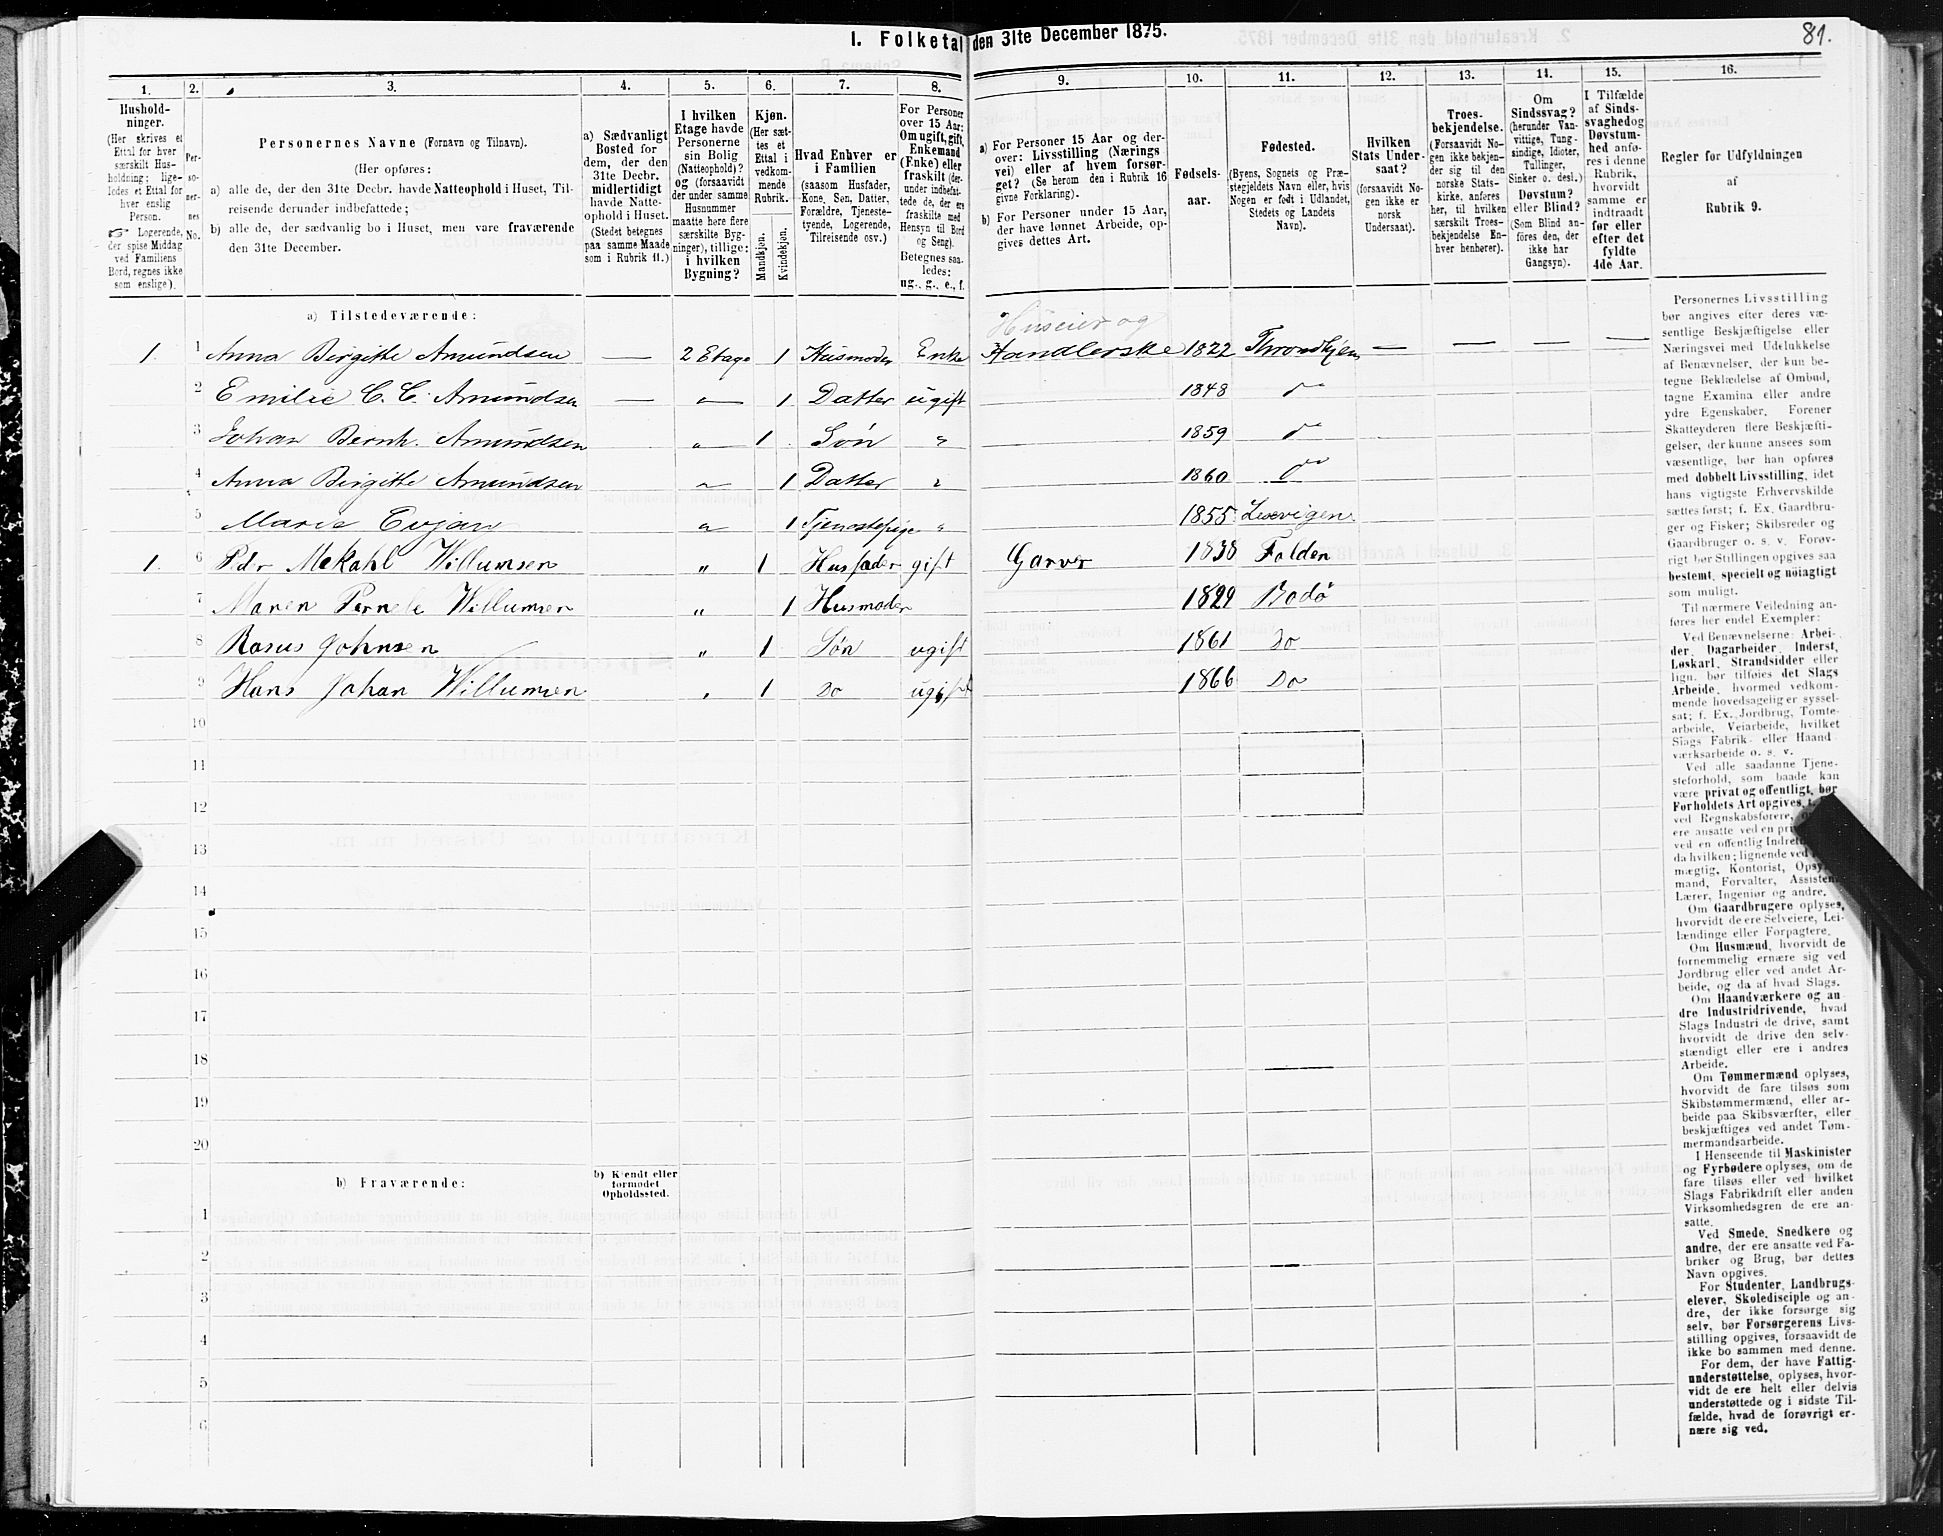 81.
I. Folketal den 31te December 1875.
1. 2. 3. 4. 5. 6. 7. 8. 9. 10. 11. 12. 13. 14. 15. 16.
Hushold-
ninger.
(Her skrives et
Ettal for hver
særskilt Hus-
holdning; lige-
ledes et Ettal for
hver enslig
Person.
☞ Logerende,
der spise Middag
ved Familiens
Bord, regnes ikke
som enslige).
Per-
so-
ner-
nes
No.
Personernes Navne (Fornavn og Tilnavn).
(Her opføres:
a) alle de, der den 31te Decbr. havde Natteophold i Huset, Til-
reisende derunder indbefattede;
b) alle de, der sædvanlig bo i Huset, men vare fraværende
den 31te December.
a) Sædvanligt
Bosted for
dem, der den
31te Decbr.
midlertidigt
havde Natte-
ophold i Huset.
(Stedet betegnes
paa samme Maade
som i Rubrik 11.)
I hvilken
Etage havde
Personerne
sin Bolig
(Natteophold)?
og (forsaavidt
der under samme
Husnummer
maatte høre flere
særskilte Byg-
ninger), tillige:
i hvilken
Bygning?
Kjøn.
(Her sæt-
tes et
Ettal i
vedkom-
mende
Rubrik.
Mandkjøn.
Kvindekjøn.
Hvad Enhver er
i Familien
(saasom Husfader,
Kone, Søn, Datter,
Forældre, Tjeneste-
tyende, Logerende,
Tilreisende osv.)
For Personer
over 15 Aar:
Om ugift, gift,
Enkemand
(Enke) eller
fraskilt (der-
under indbefat-
tede de, der ere
fraskilte med
Hensyn til Bord
og Seng).
Betegnes saa-
ledes:
ug., g., e., f.
a) For Personer 15 Aar og der-
over: Livsstilling (Nærings
vei) eller af hvem forsør-
get? (Se herom den i Rubrik 16
givne Forklaring).
b) For Personer under 15 Aar,
der have lønnet Arbeide, op-
gives dettes Art.
Fødsels-
aar.
Fødested.
(Byens, Sognets og Præ-
stegjeldets Navn eller, hvis
Nogen er født i Udlandet,
Stedets og Landets
Navn).
Hvilken
Stats Under-
saat?
(forsaavidt No-
gen ikke er
norsk
Undersaat).
Troes-
bekjendelse.
(Forsaavidt No-
gen ikke bekjen-
der sig til den
norske Stats-
kirke, anføres
her, til hvilken
særskilt Troes-
bekjendelse En-
hver henhører).
Om
Sindssvag?
(herunder Van-
vittige, Tung-
sindige, Idioter,
Tullinger,
Sinker o. desl.)
Døvstum?
eller Blind?
(Som Blind an-
føres den, der
ikke har
Gangsyn).
I Tilfælde
af Sinds-
svaghed og
Døvstum-
hed anfø-
res i denne
Rubrik,
hvorvidt
samme er
indtraadt
før eller
efter det
fyldte
4de Aar.
Regler for Udfyldningen
af
Rubrik 9.
a) Tilstedeværende:
Huseier og
1. 1 Anna Birgitte Amundsen — 2 Etage 1 Husmoder Enke Handlerske 1822 Throndhjem — — — —
2 Emilie C. C. Amundsen — „ 1 Datter ugift 1848 do
3 Johan Bernh. Amundsen „ 1 Søn „ 1859 do
4 Anna Birgitte Amundsen „ 1 Datter „ 1860 do
5 Marie Evjan „ 1 Tjenestepige „ 1855
1. 6 Pdr Mekahl Willumsen „ 1 Husfader gift Garver 1838 Folden
7 Maren Pernele Willumsen „ 1 Husmoder 1829 Bodö
8 Rasus Johnsen „ 1 Søn ugift 1861 Do
9 Hans Johan Willumsen „ 1 Do ugift 1866 Do
10
11
12
13
14
15
16
17
18
19
20
b) Fraværende:
b) Kjendt eller
formodet
Opholdssted.
1
2
3
4
5
6
Personernes Livsstilling
bør angives efter deres væ-
sentlige Beskjæftigelse eller
Næringsvei med Udelukkelse
af Benævnelser, der kun be-
tegne Beklædelse af Ombud,
tagne Examina eller andre
ydre Egenskaber. Forener
Skatteyderen flere Beskjæfti-
gelser, der kunne ansees som
væsentlige, bør han opføres
med dobbelt Livsstilling, idet
hans vigtigste Erhvervskilde
sættes først; f. Ex. Gaardbru-
ger og Fisker; Skibsreder og
Gaardbruger o. s. v. Forøv-
rigt bør Stillingen opgives saa
bestemt, specielt og nøiagtigt
som muligt.
Til nærmere Veiledning an-
føres her endel Exempler:
Ved Benævnelserne: Arbei-
der, Dagarbeider, Inderst,
Løskarl, Strandsidder eller
lign. bør tilføies det Slags
Arbeide, hvormed vedkom-
mende hovedsagelig er syssel-
sat; f. Ex. Jordbrug, Tømte-
arbeide, Veiarbeide, hvilket
Slags Fabrik- eller Haand-
værksarbeide o. s. v.
Ved alle saadanne Tjene-
steforhold, som baade kan
være privat og offentligt, bør
Forholdets Art opgives,
ved Regnskabsførere,
ere ansatte ved en
ved en offentlig
da hvilken; lignende ved
mægtig, Kontorist,
mand, Forvalter,
Lærer, Ingeniør og andre.
Om Gaardbrugere oplyses,
hvorvidt de ere Selveiere, Lei-
lændinge eller Forpagtere.
Om Husmænd, hvorvidt de
fornemmelig ernære sig ved
Jordbrug eller ved andet Ar-
beide, og da af hvad Slags.
Om Haandværkere og an
dre Industridrivende, hvad
Slags Industri de drive, samt
hvorvidt de drive den selv-
stændigt eller ere i andres
Arbeide.
Om Tømmermænd oplyses,
hvorvidt de fare tilsøs som
Skibstømmermænd, eller ar-
beide paa Skibsværfter, eller
beskjæftiges ved andet Tøm-
mermandsarbeide.
I Henseende til Maskinister
og Fyrbødere oplyses, om de
fare tilsøs eller ved hvilket
Slags Fabrikdrift eller anden
Virksomhedsgren de ere an-
satte.
Ved Smede, Snedkere og
andre, der ere ansatte ved Fa-
briker og Brug, bør dettes
Navn opgives.
For Studenter, Landbrugs-
elever, Skoledisciple og an-
dre, der ikke forsørge sig
selv, bør Forsørgerens Livs-
stilling opgives, forsaavidt de
ikke bo sammen med denne.
For dem, der have Fattig-
understøttelse, oplyses, hvor-
vidt de ere helt eller delvis
understøttede og i sidste Til-
fælde, hvad de forøvrigt er-
nære sig ved.